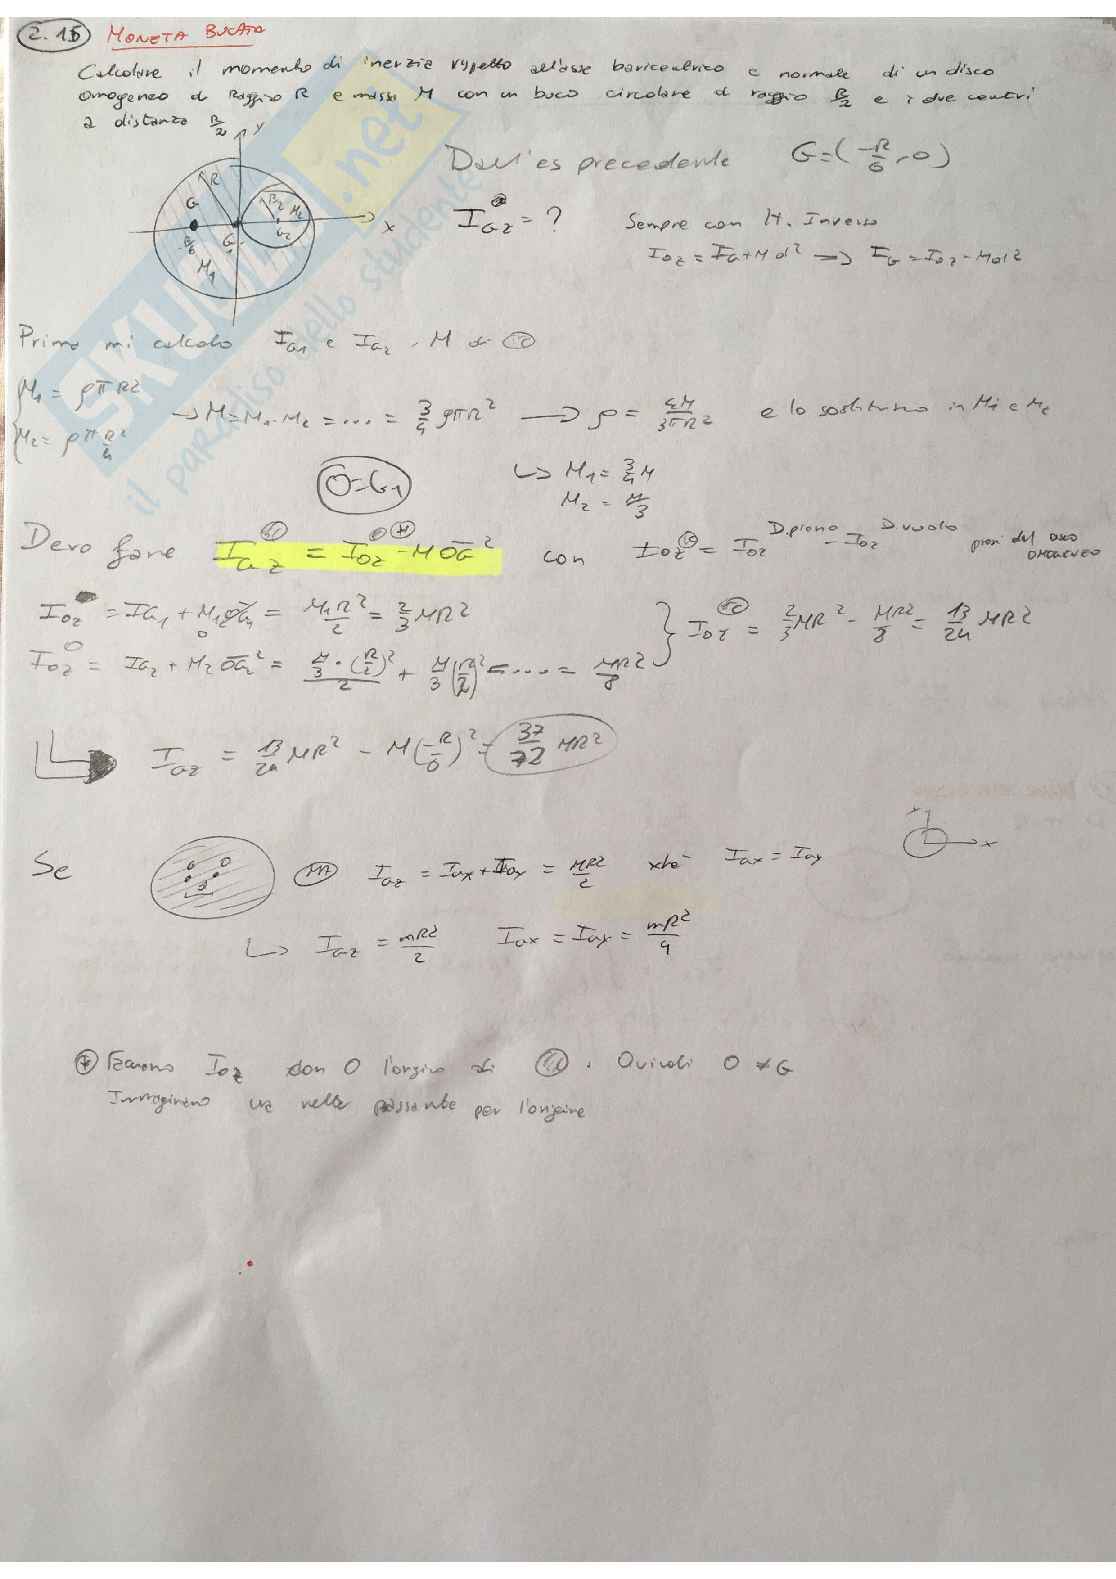 2.15 MONETA BUCATA
Calcolare il momento di inerzia rispetto all'asse baricentrico e normale di un disco
omogeneo di raggio R e massa M con un buco circolare di raggio R/2 e i due centri
a distanza R/2
y
Dall'es precedente G=(-R/6, 0)
R
G R/2 M2
x
G1 G2
-R/6
M1
IGz = ?
Sempre con H. Inverso
IOz = IG + Md² → IG = IOz - Md²
Prima mi calcolo IG1 e IG2, M di
M1 = ρπR²
M2 = ρπ R²/4
→ M = M1 - M2 = .... = 3/4 ρπR² → ρ = 4M/3πR² e lo sostituisco in M1 e M2
O=G1
↳ M1 = 3/4 M
M2 = M/3
Devo fare IGz = IOz - M OG² con IOz = IOz D.pieno - IOz D.vuoto
IOz = IG1 + M1 OG1 = M1R²/2 = 2/3 MR²
0
IOz = IG2 + M2 OG2² = M/3 · (R/2)²/2 + M/3 (R/2)² = .... = MR²/8
IOz = 2/3 MR² - MR²/8 = 13/24 MR²
IGz = 13/24 MR² - M(-R/6)² = 37/72 MR²
Se
IGz = IGx + IGx = MR²/2 xké IGx = IGy
x
↳ IGz = mR²/2 IGx = IGy = mR²/4
Facciamo IOz con O l'origine di . Quindi O ≠ G
Immaginiamo una retta passante per l'origine
SKUOLA.net
il paradiso dello studente